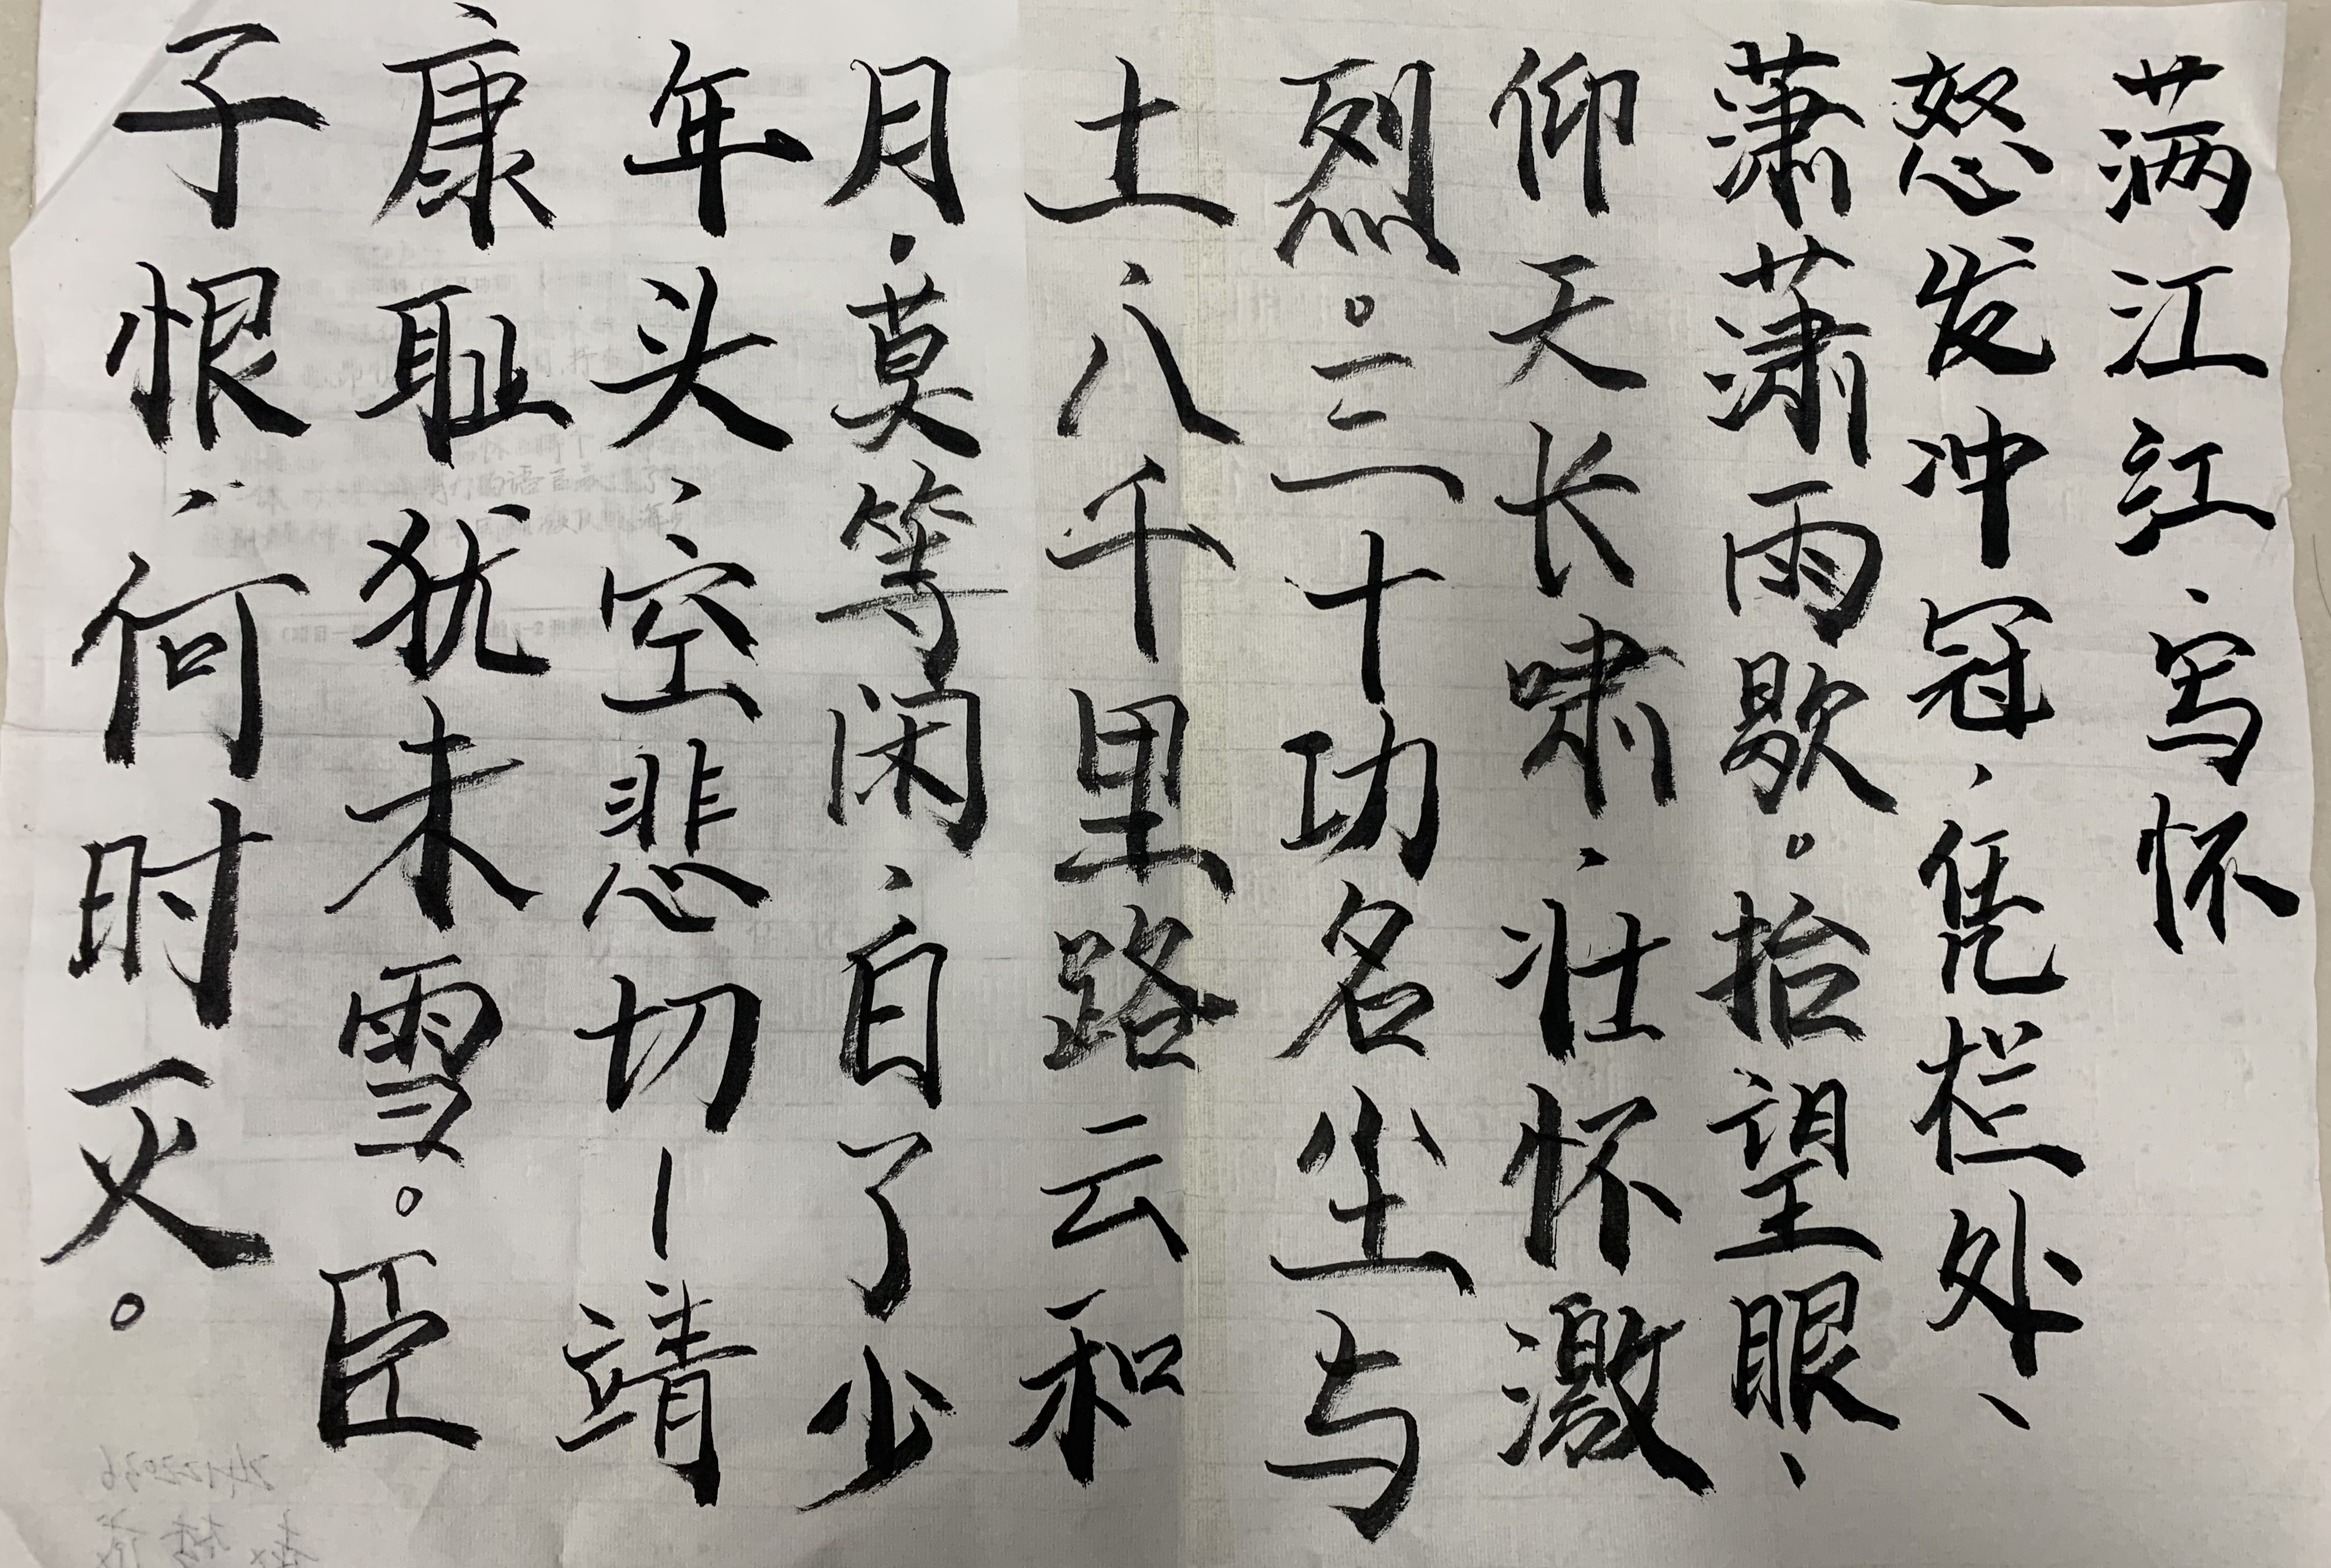 满江红·写怀
怒发冲冠，凭栏处、
潇潇雨歇。抬望眼、
仰天长啸，壮怀激
烈。三十功名尘与
土，八千里路云和
月，莫等闲、自了少
年头、空悲切！靖
康耻犹未雪。臣
子恨，何时灭。